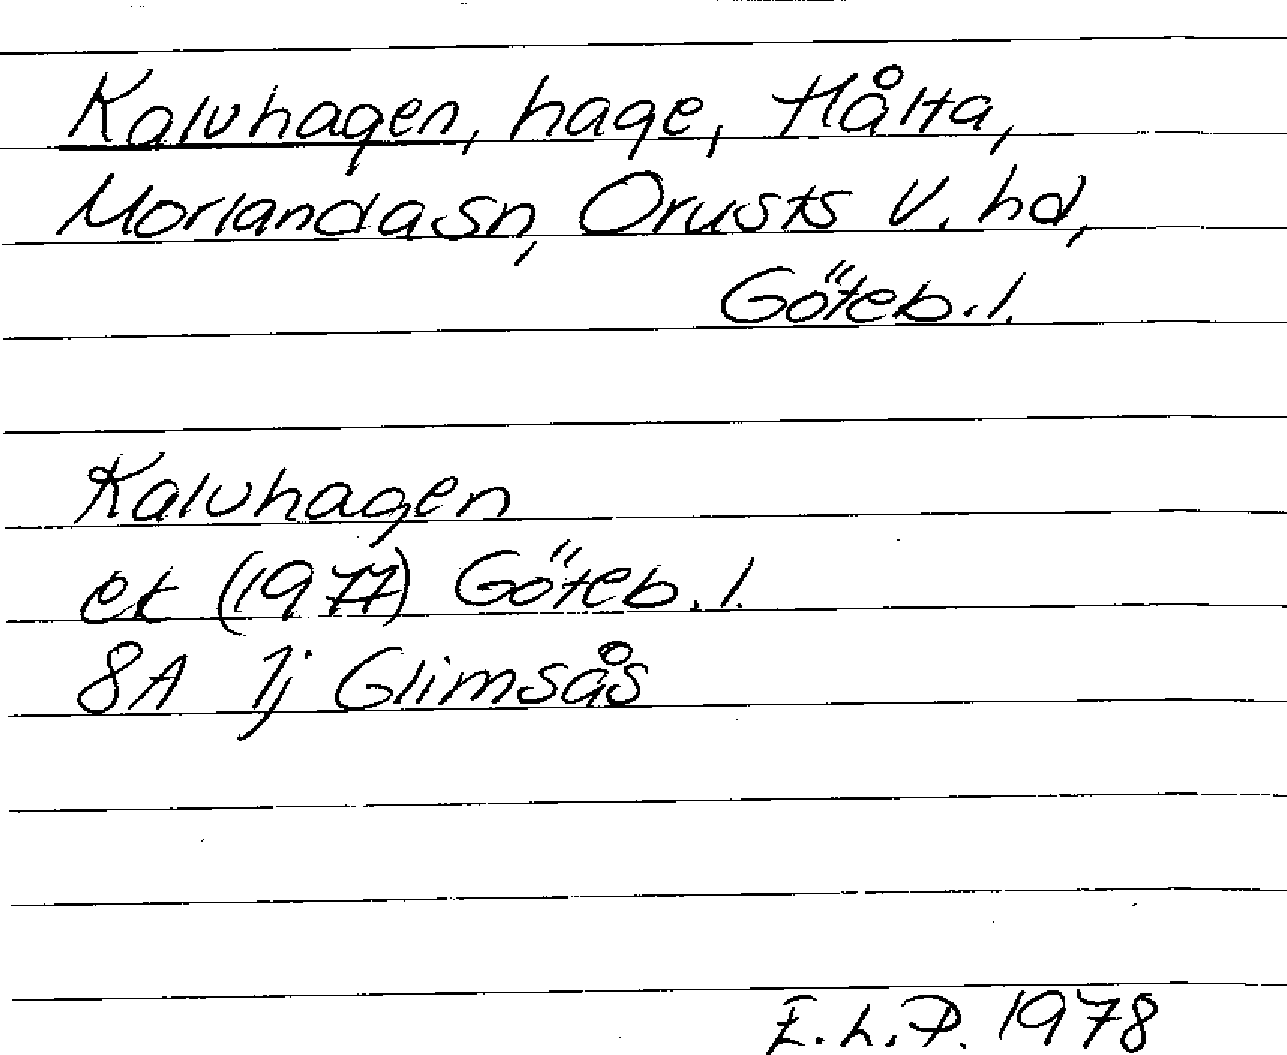 Kalvhagen, hage, Hålta,
Morlanda sn, Orusts V. hd,
Göteb. l.
Kalvhagen
ek (1977) Göteb. l.
8A 1j Glimsås
E.L.P. 1978